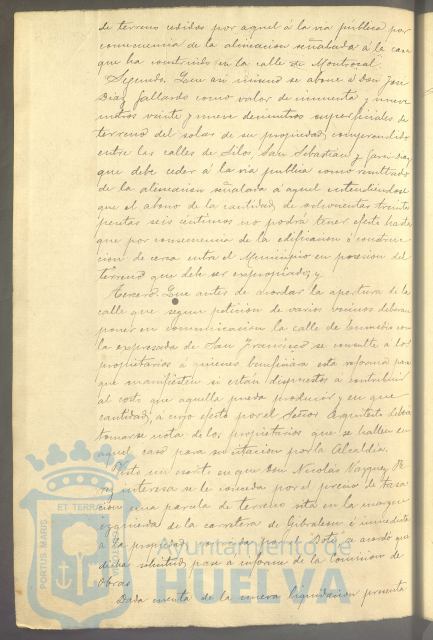 de terreno cedidos por aquel á la via pública por
consecuencia de la alineacion señalada á la casa
que ha construido en la calle de Montrocal.
Segundo. Que asi mismo se abone á Don José
Diaz Gallardo como valor de noventa y nueve
metros veinte y nueve decimetros superficiales de
terreno del solar de su propiedad, comprendido
entre las calles de Silos, San Sebastián y Garci Diaz
que debe ceder á la via publica como resultado
de la alineacion señalada á aquel entendiendose
que el abono de la cantidad de ochocientas treinta
pesetas seis centimos no podrá tener efecto hasta
que por consecuencia de la edificacion ó construc-
cion de cerca entre el Municipio en posesion del
terreno que debe ser expropiado; y
Tercero. Que antes de acordar la apertura de la
calle que segun peticion de varios vecinos deberá
poner en comunicacion la calle de con
la expresada de San Francisco se consulte á los
propietarios á quienes beneficiara esta reforma para
que manifiesten si están dispuestos á contribuir
al coste que aquella pueda producir y en que
cantidad, á cuyo efecto por el Señor Arquitecto debera
tomarse nota de los propietarios que se hallen en
aquel caso para su citacion por la Alcaldia.
Visto un escrito en que Don Nicolás Vazquez
interesa se le conceda por el precio de tasa
cion una parcela de terreno sita en la margen
izquierda de la carretera de Gibraleon é inmediata
á la propiedad por el se acordó que
dicha solicitud pase á informe de la Comision de
Obras.
Dada cuenta de la nueva liquidacion presenta
PORTUS MARIS
ET TERRAE
Ayuntamiento de
HUELVA